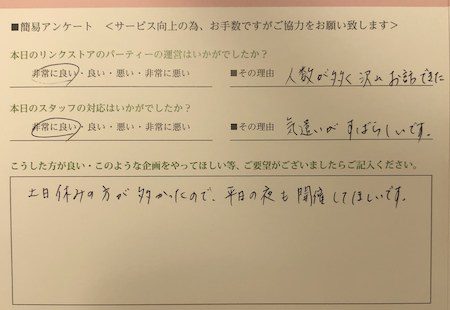 ■簡易アンケート ＜サービス向上の為、お手数ですがご協力をお願い致します＞
本日のリンクストアのパーティーの運営はいかがでしたか？
非常に良い・良い・悪い・非常に悪い ■その理由 人数が多く沢山お話できた
本日のスタッフの対応はいかがでしたか？
非常に良い・良い・悪い・非常に悪い ■その理由 気遣いがすばらしいです。
こうした方が良い・このような企画をやってほしい等、ご要望がございましたらご記入ください。
土日休みの方が多かったので、平日の夜も開催してほしいです。